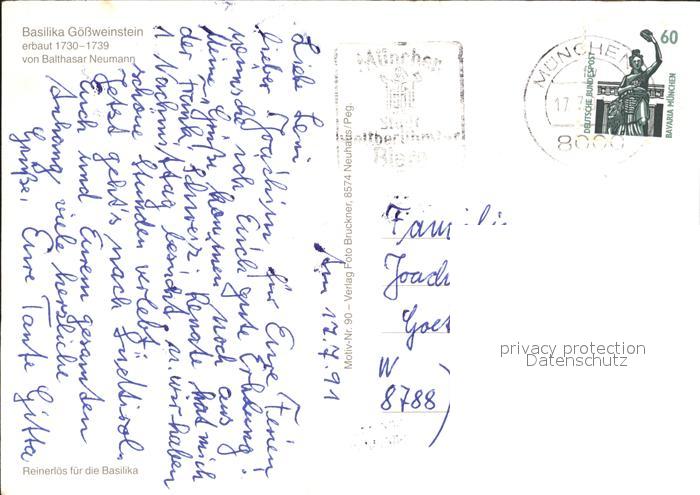 Basilika Gößweinstein
erbaut 1730–1739
von Balthasar Neumann
Am 17.7.91
Liebe Leni,
lieber Joachim, für Eure Ferien
wünsche ich Euch gute Erholung.
Meine Grüße kommen noch aus
der Fränk. Schweiz. Renate hat mich
1 Nachmittag besucht u. wir haben
schöne Stunden verlebt.
Jetzt geht's nach Südtirol.
Euch und Eurem gesamten
Anhang viele herzliche
Grüße. Eure Tante Gitta
Reinerlös für die Basilika
Motiv-Nr. 90 – Verlag Foto Bruckner, 8574 Neuhaus/Peg.
München
Stadt
weltberühmten
Biers
MÜNCHEN
17.
8000
60
DEUTSCHE BUNDESPOST
BAVARIA MÜNCHEN
Famili
Joach
Goet
W
8788
privacy protection
Datenschutz